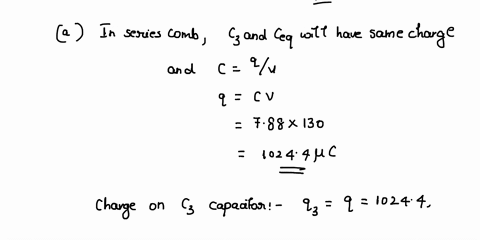 (a) In series comb, C3 and Ceq will have same charge
and C = q/v
q = CV
= 7.88 × 130
= 1024.4 μC
Charge on C3 capacitor:- q3 = q = 1024.4.